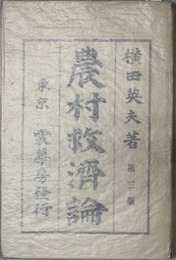 横田英夫著
第三版
農村救濟論
東京 裳華房發行